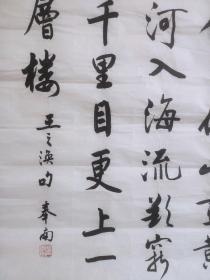 河入海流欲窮
千里目更上一
層樓
王之渙句 奉南